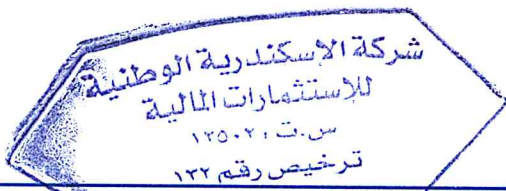 شركة الاسكندرية الوطنية
للاستثمارات المالية
س.ت : ١٢٥٠٢
ترخيص رقم ١٢٢